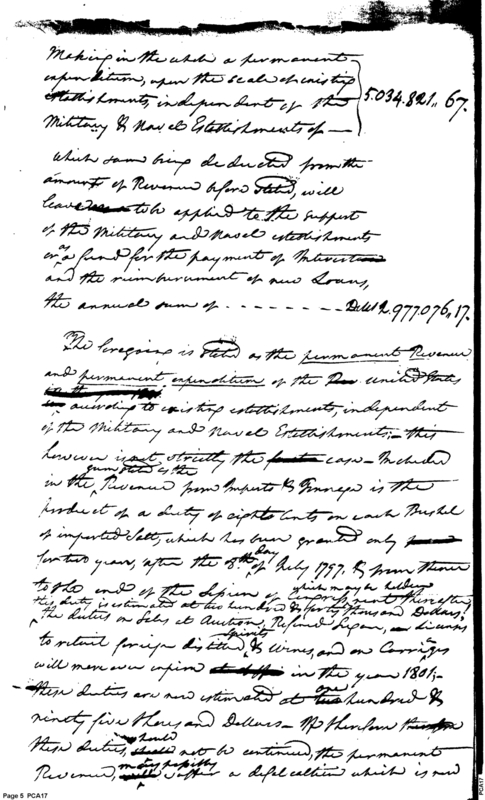 Making in the whole a permanent
expenditure, upon the scale of existing
establishments, independent of the 5.034.821,, 67.
Military & Naval Establishments of —
which sum being deducted from the
amount of Revenue before stated, will
leave to be applied to the support
of the Military and Naval establishments
or as a fund for the payment of Interest
and the reimbursement of new Loans,
the annual sum of - - - - - - - - Dolls 2.977.076,,17.
The foregoing is stated as the permanent Revenue
and permanent expenditure of the United States
according to existing establishments, independent
of the Military and Naval Establishments;— this
however is not strictly the case — Included
in the sum stated as the Revenue from Imposts & Tonnage is the
product of a duty of eight Cents on each Bushel
of imported Salt, which has been granted only
for two years, after the 8th day of July 1797. & from thence
to the end of the Session of Congress which may be holden next thereafter,
this duty is estimated at two hundred & forty thousand Dollars;
the duties on Sales at Auction, Refined Sugar, licenses
to retail foreign distilled spirits & Wines, and on Carriages
will moreover expire in the year 1801;—
these duties are now estimated at one hundred &
ninety five thousand Dollars — If therefore
these duties should not be continued, the permanent
Revenue, may possibly suffer a defalcation which is now
Page 5 PCA17
PCA17